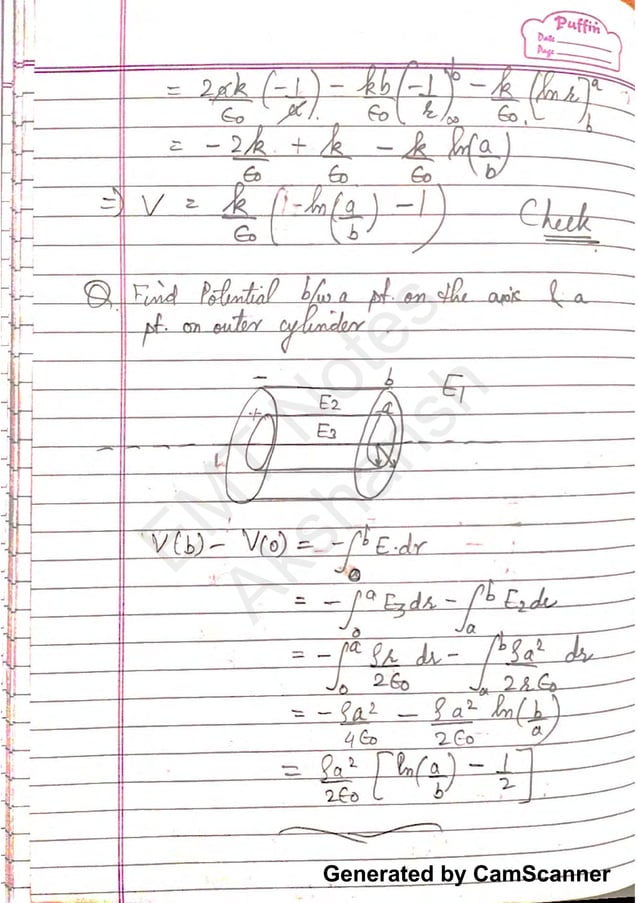 Puffin
Date
Page
= 2αk/ϵ0 (-1/α) - kb/ϵ0 (-1/r)^b_∞ - k/ϵ0 (ln r)^a_b
= -2k/ϵ0 + k/ϵ0 - k/ϵ0 ln(a/b)
⇒ V = k/ϵ0 (-ln(a/b) - 1) Check
Q. Find Potential b/w a pt. on the axis & a
pt. on outer cylinder.
- b E1
+ E2 a
E3
V(b) - V(0) = -∫_0^b E.dr
= -∫_0^a E3 dr - ∫_a^b E2 dr
= -∫_0^a ρr/2ϵ0 dr - ∫_a^b ρa²/2rϵ0 dr
= -ρa²/4ϵ0 - ρa²/2ϵ0 ln(b/a)
= ρa²/2ϵ0 [ln(a/b) - 1/2]
EMT Notes
Akshansh
Generated by CamScanner